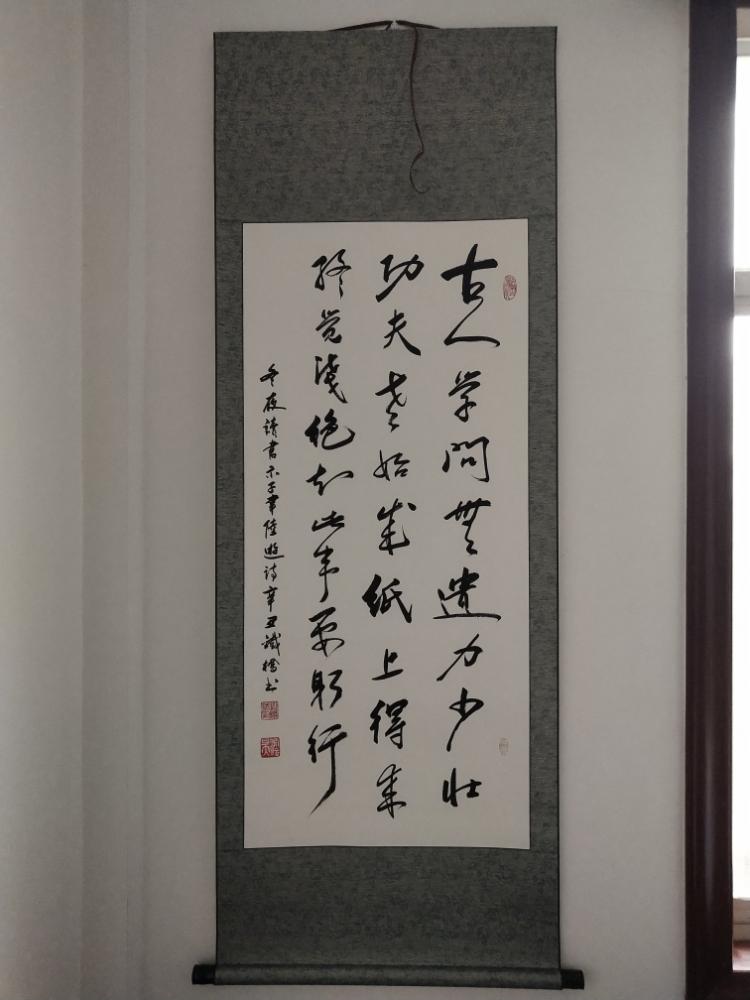 古人学问無遗力少壮
功夫老始成纸上得来
终觉浅绝知此事要躬行
冬夜读书示子聿陆遊诗辛丑
书